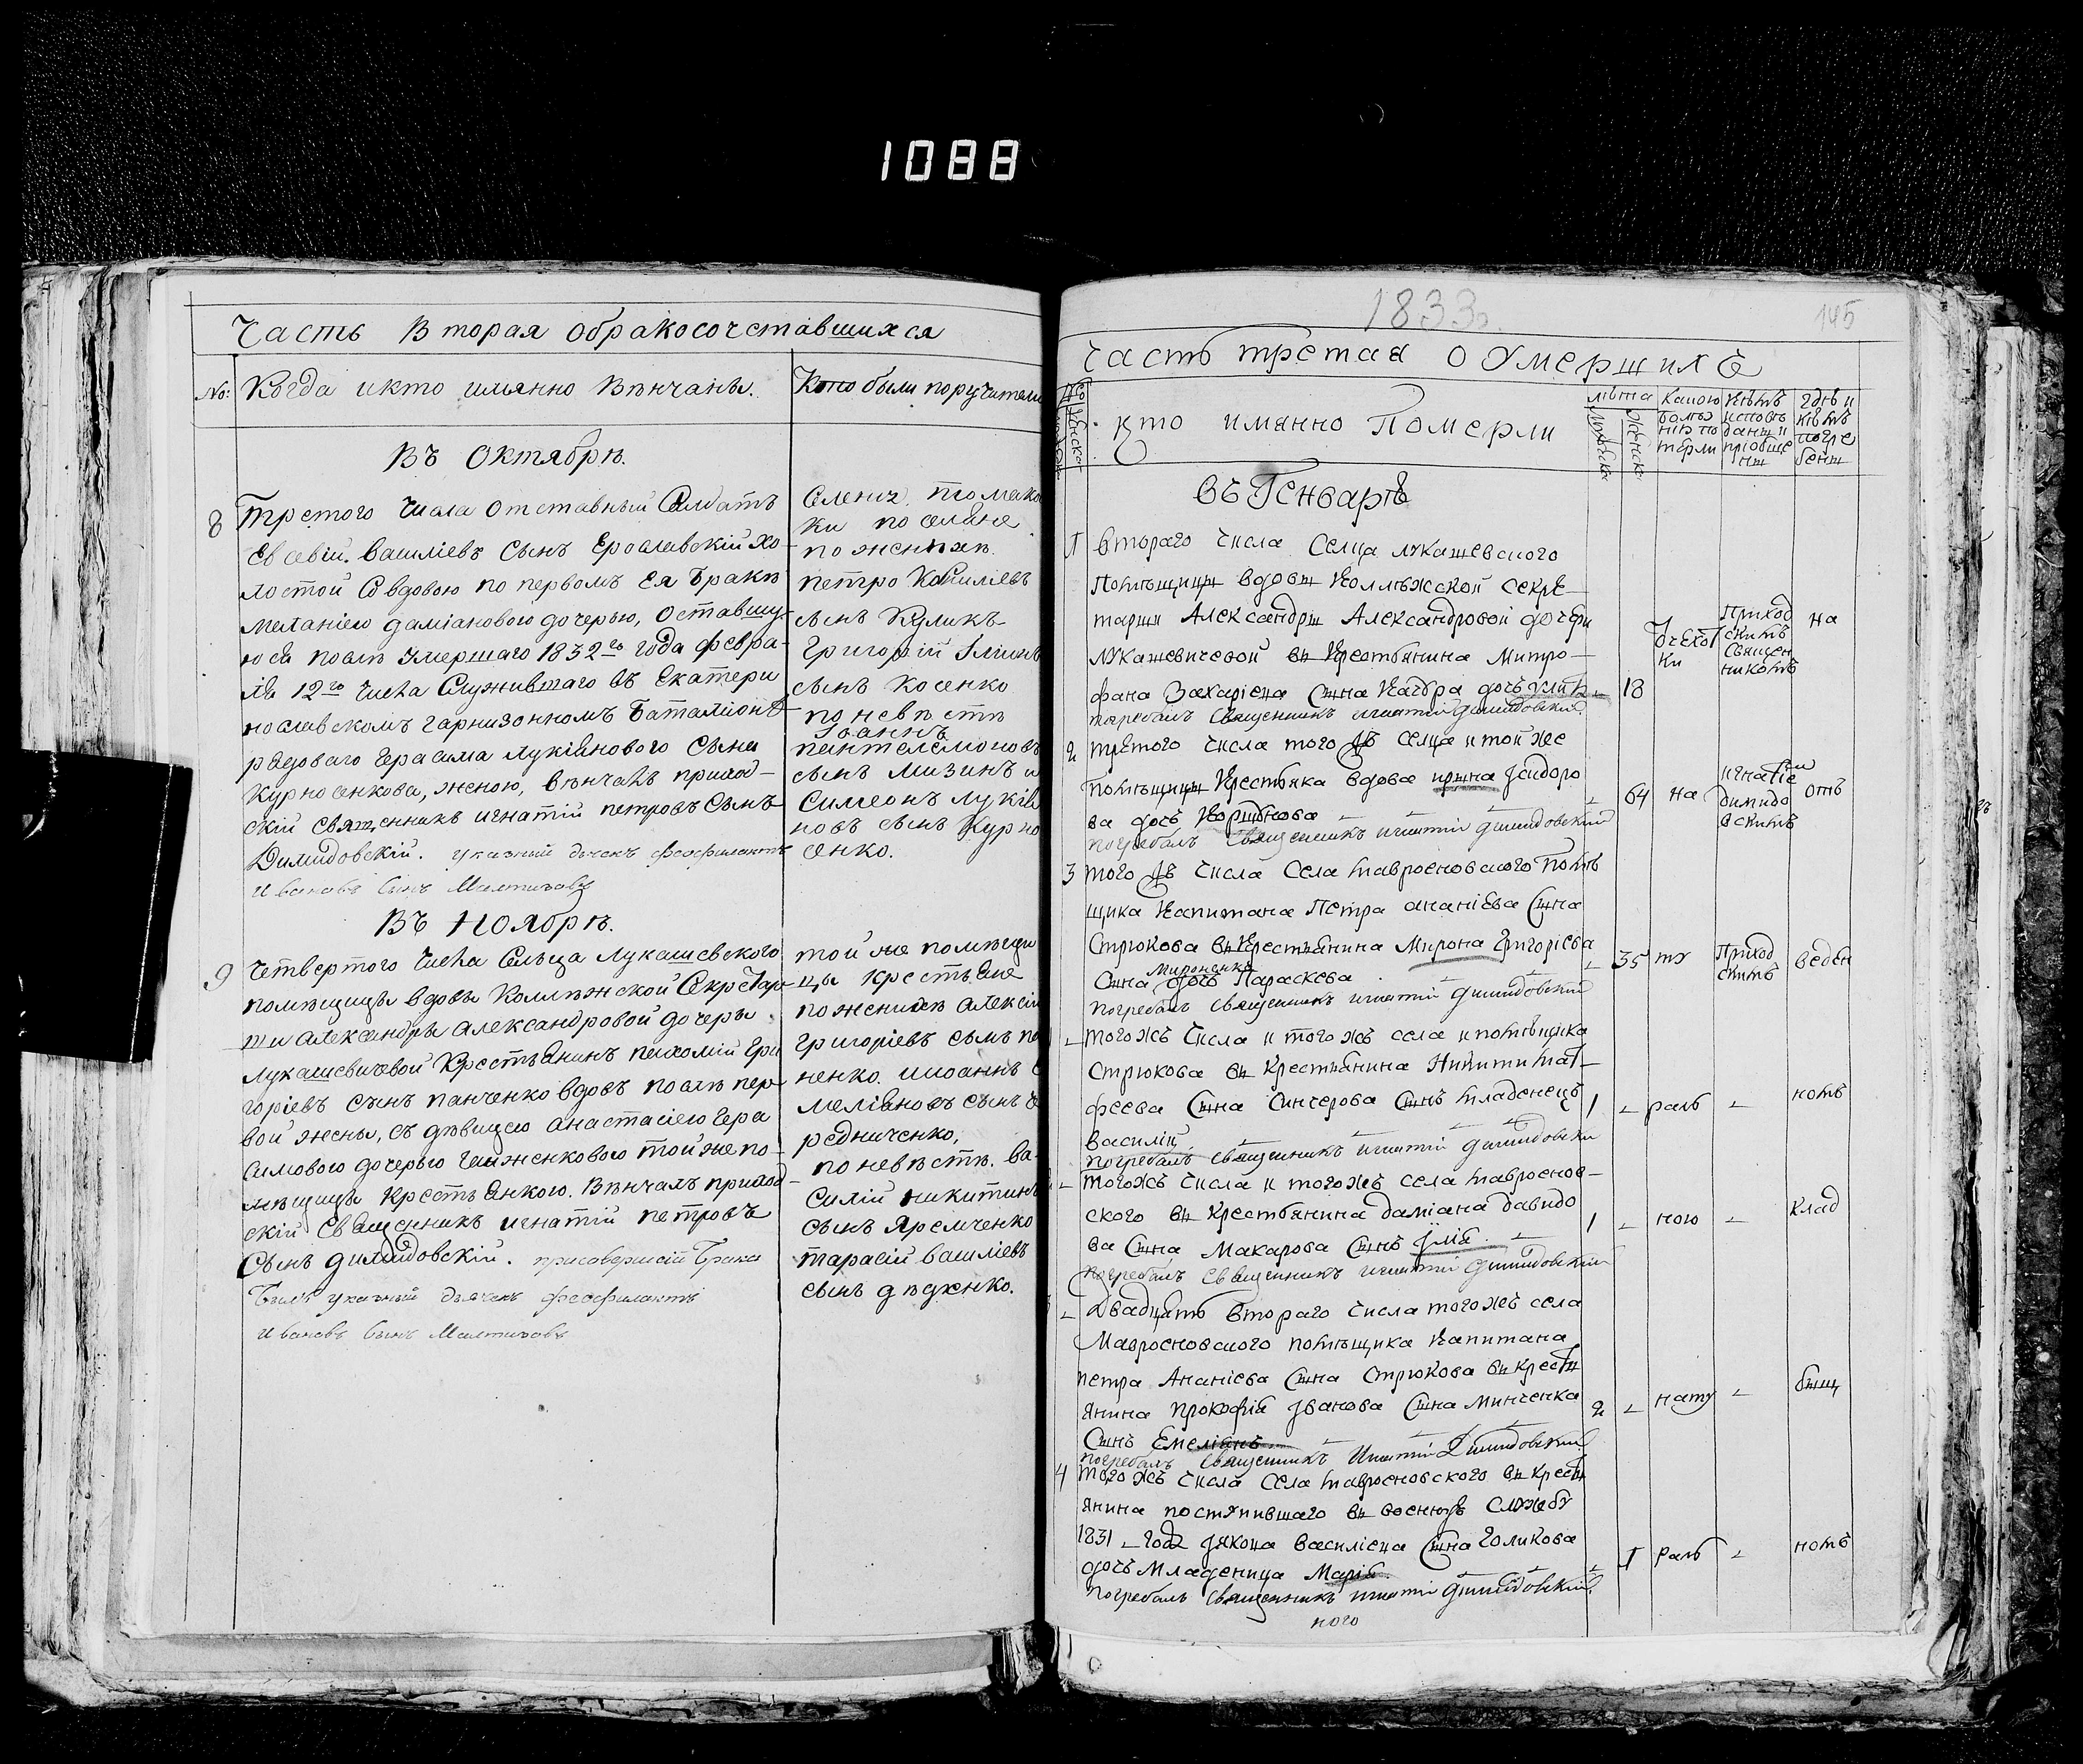 1088
Часть Вторая обракосочетавшихся
№: Когда икто имянно Вѣнчаны. Кто были поручители
Въ Октябрѣ.
8 Третого Числа Отставный Салдатъ
Евсевій Василіевъ Сынъ Ерославскій хо-
лостой Совдовою по первомъ Ея Бракѣ
Меланіею даміановою дочерью, Оставшу-
юся послѣ Умершаго 1832го года февра-
ля 12го Числа Служившаго въ Екатери
нославскомъ гарнизонномъ Баталіонѣ
рядоваго Герасима Лукіянового Сына
Курносенкова, женою, вѣнчалъ приход-
скій священникъ игнатій петровъ Сынъ
Димидовскій. указный дьячекъ феофилактъ
Ивановъ Сынъ
ки поселяне
по женихѣ.
петро
сынъ Куликъ
Григорій
сынъ Косенко
по невѣстѣ
Іоаннъ
пантелемоновъ
сынъ Мизинъ и
Симеонъ Лукія
новъ сынъ Курно
сенко.
Въ Ноябрѣ.
9 Четвертого Числа Сельца Лукашевского
помѣщицы вдовы Коллѣжской Секретар-
ши Александры Александровой дочеры
Лукашевичевой Крестьянинъ пахомій Гри
горіевъ сынъ панченко вдовъ послѣ пер-
вой жены, съ дѣвицею анастасіею Гера
симовою дочерью тойже по-
мѣщицы крестьянкою. Вѣнчалъ приход-
скій Священникъ игнатій петровъ
Сынъ димидовскій. присовершеніи Брака
Былъ указный дьячекъ феофилактъ
Ивановъ Сынъ
той же помѣщи
цы крестьяне
по женихѣ алексій
григоріевъ сынъ па
ненко. иоаннъ
меліановъ сынъ че
редниченко,
по невѣстѣ. Ва-
силій никитинъ
сынъ Яремченко
тарасій василіевъ
сынъ дѣдченко.
1833.
145
Часть третая о Умершихъ
кто имянно Померли
лѣта
Мужска Женска
Какою болѣзнію померли
Кѣмъ исповѣданы и пріобщены
Гдѣ и кѣмъ погребены
въ Генварѣ
1 втораго Числа Селца лукашевского
Помѣщицы вдовы Коллѣжской секре-
тарши Александры Александровой дочери
Лукашевичевой Крестьянина Митро-
фана Захаріева Сына дочь 18
Приходскимъ Священникомъ
на
погребалъ Священникъ игнатій димидовскій.
2 третого числа того жъ селца и той же
Помѣщицы Крестьянка вдова ирина Ісидоро
ва дочь 64 на
игнатіемъ димидовскимъ
отъ
погребалъ Священникъ игнатій димидовскій
3 того жъ числа Села Мавроеновского Помѣ
щика Капитана Петра ананіева Сына
Стрюкова Крестьянина Мирона Григоріева
Сына Мироненка дочь Параскева 35 ту
Приходскимъ
веден
погребалъ Священникъ игнатій димидовскій
тогожъ Числа и того жъ села и помѣщика
Стрюкова Крестьянина Никити Мат-
феева Сына Сынъ младенецъ 1 раль номъ
василій.
погребалъ Священникъ игнатій димидовски
тогожъ Числа и тогожъ села Мавроенов-
ского Крестьянина даміана давидо
ва Сына Макарова Сынъ Ілія 1 ною клад
погребалъ Священникъ игнатій димидовскій
Двадцять втораго Числа тогожъ села
Мавроеновского помѣщика Капитана
петра Ананіева Сына Стрюкова Кресты
янина Прокофія Іванова Сына Минченка 2 нату бищ
Сынъ Емеліянъ
погребалъ Священникъ Игнатій Димидовскій
4 того жъ Числа Села Мавроеновского Кресты
янина поступившаго военную службу
1831 года Іякова Василіева Сына Голикова
дочь младеница Марія. 1 раль номъ
погребалъ Священникъ игнатій димидовскій.
ного